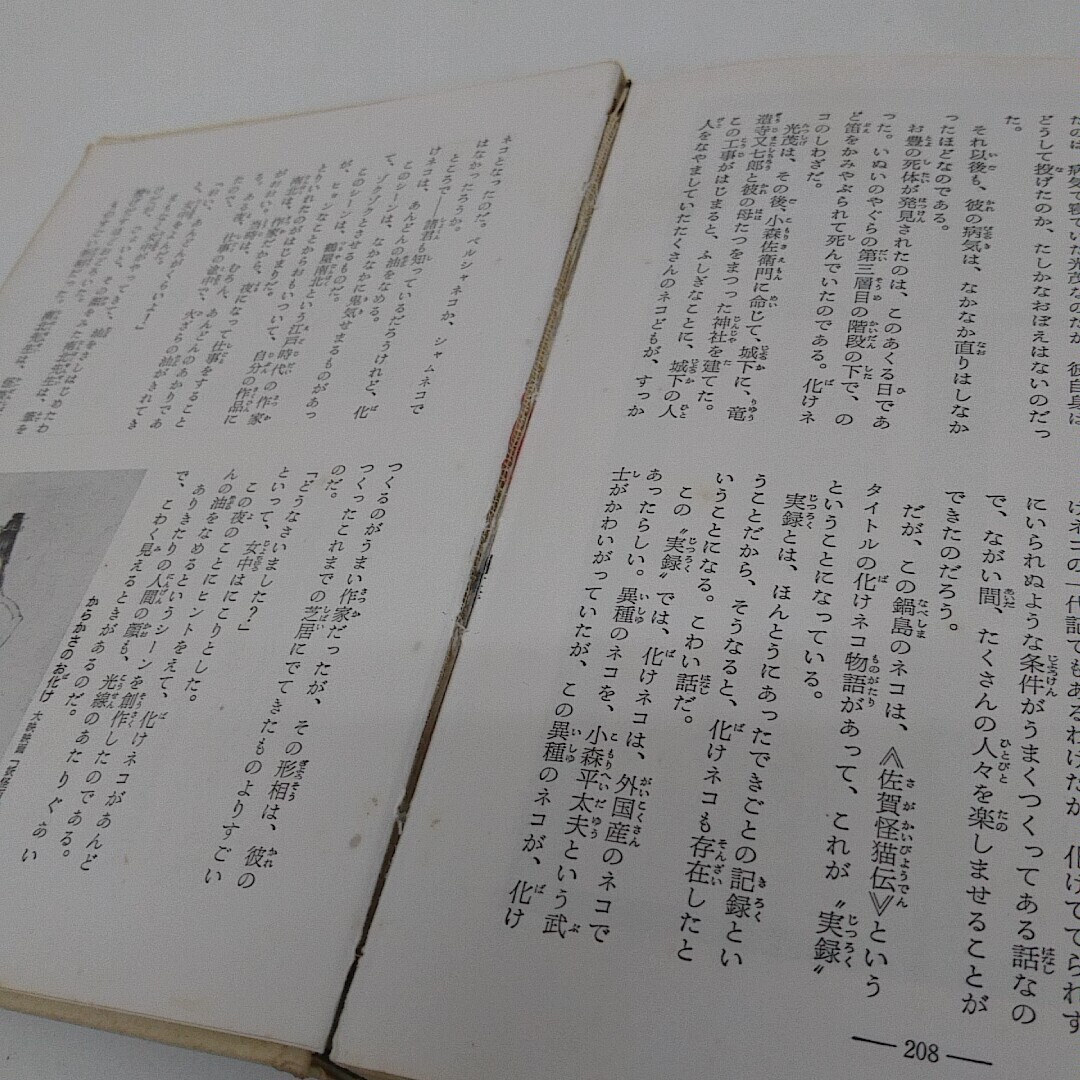 たのは、病気で寝ていた光茂なのだが、彼自身は
どうして投げたのか、たしかなおぼえはないのだっ
た。
それ以後も、彼の病気は、なかなか直りはしなか
ったほどなのである。
お豊の死体が発見されたのは、このあくる日であ
った。いぬいのやぐらの第三層目の階段の下で、の
ど笛をかみやぶられて死んでいたのである。化けネ
コのしわざだ。
光茂は、その後、小森佐衛門に命じて、城下に、竜
造寺又七郎と彼の母たつをまつった神社を建てた。
この工事がはじまると、ふしぎなことに、城下の人
人をなやましていたたくさんのネコどもが、すっか
けネコの一代記でもあるわけだが、化けててられず
にいられぬような条件がうまくつくってある話なの
で、ながい間、たくさんの人々を楽しませることが
できたのだろう。
だが、この鍋島のネコは、《佐賀怪猫伝》という
タイトルの化けネコ物語があって、これが〝実録〟
ということになっている。
実録とは、ほんとうにあったできごとの記録とい
うことだから、そうなると、化けネコも存在したと
いうことになる。こわい話だ。
この〝実録〟では、化けネコは、外国産のネコで
あったらしい。異種のネコを、小森平太夫という武
士がかわいがっていたが、この異種のネコが、化け
208
ネコとなったのだ。ペルシャネコか、シャムネコで
はなかったろうか。
ところで——諸君も知っているだろうけれど、化
けネコは、あんどんの油をなめる。
このシーンは、なかなかに鬼気せまるものがあっ
て、ゾクゾクとさせるものだ。
が、このシーンは、鶴屋南北という江戸時代の作家
が、ヒョンなことからおもいついて、自分の作品に
とりいれたのがはじまりだ。
南北は、
がお
たので、ある夜、仕事の途中で、
つくるのがうまい作家だったが、その形相は、彼の
つくったこれまでの芝居にでてきたものよりすごい
のだ。
「どうなさいました？」
といって、女中はにこりとした。
この夜のことにヒントをえて、化けネコがあんど
んの油をなめるというシーンを創作したのである。
ありきたりの人間の顔も、光線のあたりぐあい
で、こわく見えるときがあるのだ。
からかさのお化け 大映映画